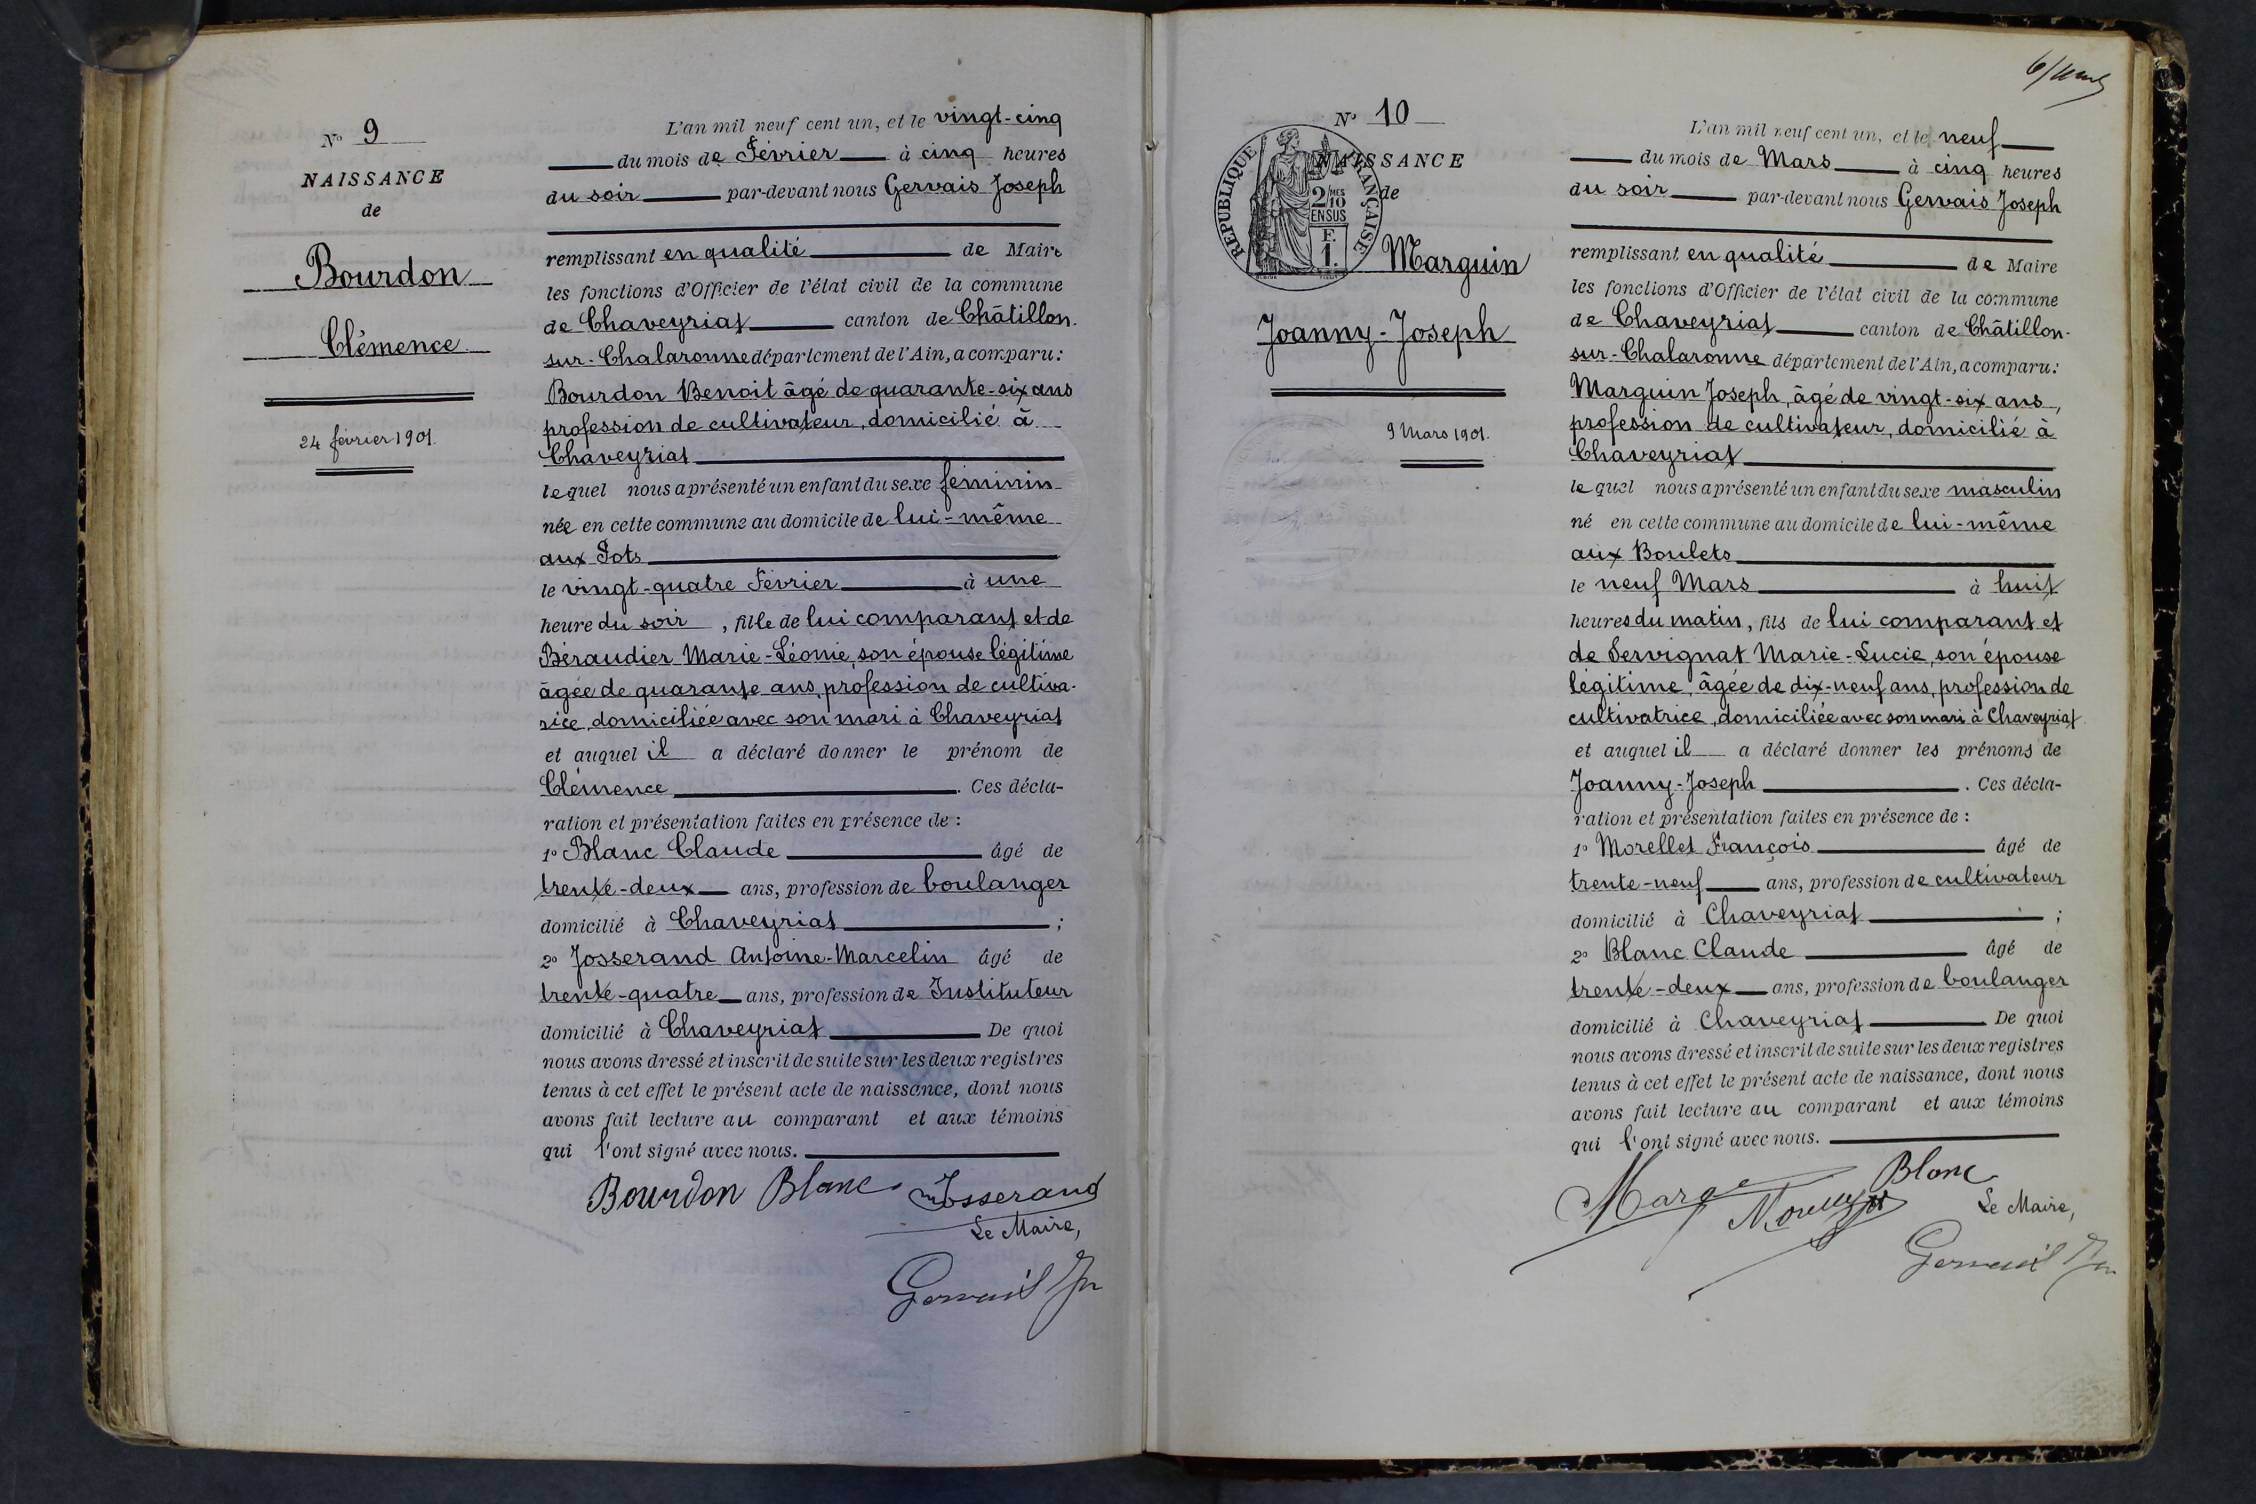 N° 9
NAISSANCE
de
Bourdon
Clémence
24 février 1901.
L'an mil neuf cent un, et le vingt-cinq
du mois de Février à cinq heures
du soir par-devant nous Gervais Joseph
remplissant en qualité de Maire
les fonctions d'Officier de l'état civil de la commune
de Chaveyriat canton de Châtillon-
sur-Chalaronne département de l'Ain, a comparu :
Bourdon Benoit âgé de quarante-six ans
profession de cultivateur, domicilié à
Chaveyriat
lequel nous a présenté un enfant du sexe féminin
née en cette commune au domicile de lui-même
aux
le vingt-quatre Février à une
heure du soir, fille de lui comparant et de
Béraudier Marie-Léonie, son épouse légitime
âgée de quarante ans, profession de cultiva-
rice, domiciliée avec son mari à Chaveyriat
et auquel il a déclaré donner le prénom de
Clémence. Ces décla-
ration et présentation faites en présence de :
1° Blanc Claude âgé de
trente-deux ans, profession de boulanger
domicilié à Chaveyriat ;
2° Josserand Antoine-Marcelin âgé de
trente-quatre ans, profession de Instituteur
domicilié à Chaveyriat De quoi
nous avons dressé et inscrit de suite sur les deux registres
tenus à cet effet le présent acte de naissance, dont nous
avons fait lecture au comparant et aux témoins
qui l'ont signé avec nous.
Bourdon Blanc Josserand
Le Maire,
6/
N° 10
NAISSANCE
de
RÉPUBLIQUE FRANÇAISE
2/10 MES
EN SUS
F.
1.
Marguin
Joanny-Joseph
9 Mars 1901.
L'an mil neuf cent un, et le neuf
du mois de Mars à cinq heures
du soir par-devant nous Gervais Joseph
remplissant en qualité de Maire
les fonctions d'Officier de l'état civil de la commune
de Chaveyriat canton de Châtillon-
sur-Chalaronne département de l'Ain, a comparu :
Marguin Joseph, âgé de vingt-six ans,
profession de cultivateur, domicilié à
Chaveyriat
lequel nous a présenté un enfant du sexe masculin
né en cette commune au domicile de lui-même
aux Boulets
le neuf Mars à huit
heures du matin, fils de lui comparant et
de Servignat Marie-Lucie, son épouse
légitime, âgée de dix-neuf ans, profession de
cultivatrice, domiciliée avec son mari à Chaveyriat
et auquel il a déclaré donner les prénoms de
Joanny-Joseph. Ces décla-
ration et présentation faites en présence de :
1° Morellet François âgé de
trente-neuf ans, profession de cultivateur
domicilié à Chaveyriat ;
2° Blanc Claude âgé de
trente-deux ans, profession de boulanger
domicilié à Chaveyriat De quoi
nous avons dressé et inscrit de suite sur les deux registres
tenus à cet effet le présent acte de naissance, dont nous
avons fait lecture au comparant et aux témoins
qui l'ont signé avec nous.
Blanc
Le Maire,